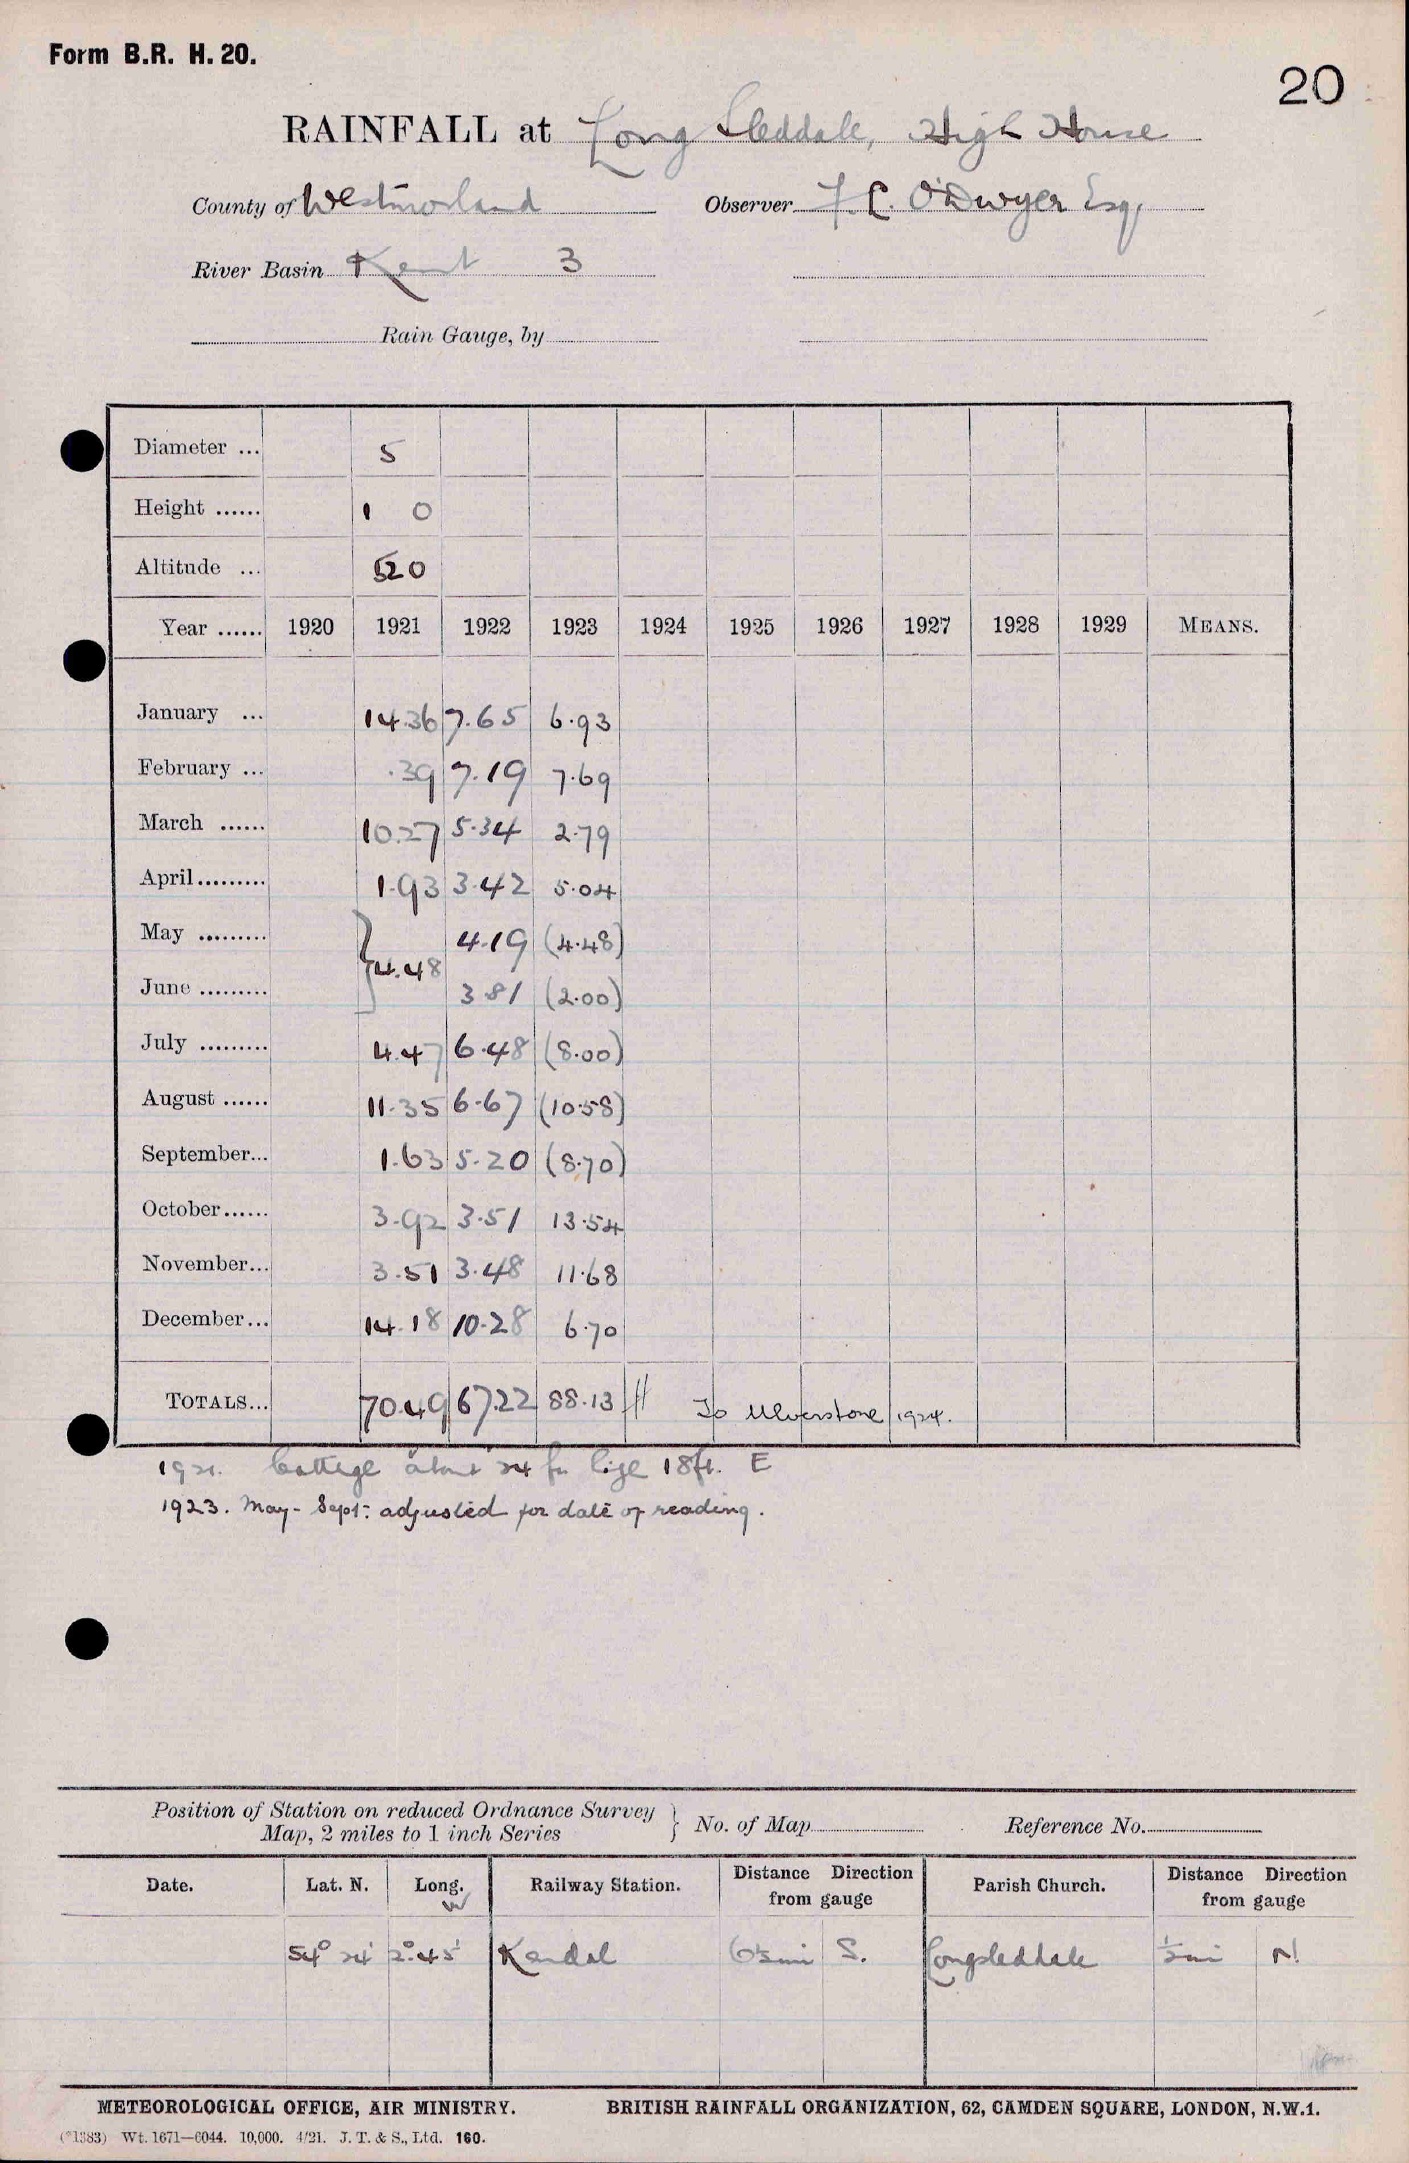 Form B.R. H. 20.
20
RAINFALL at Long Sleddale, High House
County of Westmorland Observer F. C. O'Dwyer Esq,
River Basin Kent 3
Rain Gauge, by
Diameter ... 5
Height ...... 1 0
Altitude ... 520
Year ...... 1920 1921 1922 1923 1924 1925 1926 1927 1928 1929 MEANS.
January ... 14.36 7.65 6.93
February ... .39 7.19 7.69
March ...... 10.27 5.34 2.79
April......... 1.93 3.42 5.04
May ......... 4.19 (4.48)
} 4.48
June ......... 3 81 (2.00)
July ......... 4.47 6.48 (8.00)
August ...... 11.35 6.67 (10.58)
September... 1.63 5.20 (8.70)
October...... 3.92 3.51 13.54
November... 3.51 3.48 11.68
December... 14.18 10.28 6.70
TOTALS... 70.49 67.22 88.13 To Ulverstone 1924.
1921. Cottage about 24 ft 18ft. E
1923. May - Sept: adjusted for date of reading.
Position of Station on reduced Ordnance Survey
Map, 2 miles to 1 inch Series } No. of Map Reference No.
Date. Lat. N. Long. W Railway Station. Distance Direction from gauge Parish Church. Distance Direction from gauge
54° 24' 2° 45' Kendal 6½mi S. Longsleddale ½mi N
METEOROLOGICAL OFFICE, AIR MINISTRY. BRITISH RAINFALL ORGANIZATION, 62, CAMDEN SQUARE, LONDON, N.W.1.
(*1383) Wt. 1671—6044. 10,000. 4/21. J. T. & S., Ltd. 160.